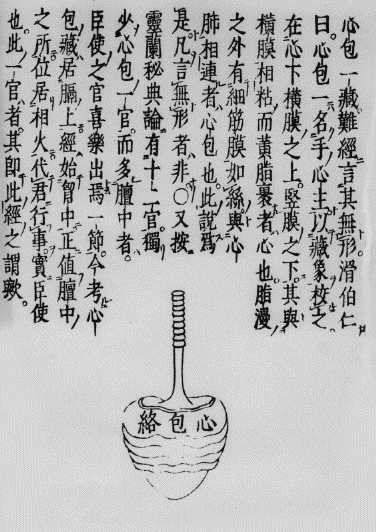 心包一藏難經言其無形滑伯仁
曰心包一名手心主以藏象校之
在心下橫膜之上竪膜之下其與
橫膜相粘而黃脂裹者心也脂漫
之外有細筋膜如絲與心
肺相連者心包也此說爲
是凡言無形者非○又按
靈蘭秘典論有十二官獨
少心包一官而多膻中者
臣使之官喜樂出焉一節今考心
包藏居膈上經始胷中正值膻中
之所位居相火代君行事實臣使
也此一官者其即此經之謂歟
心包絡